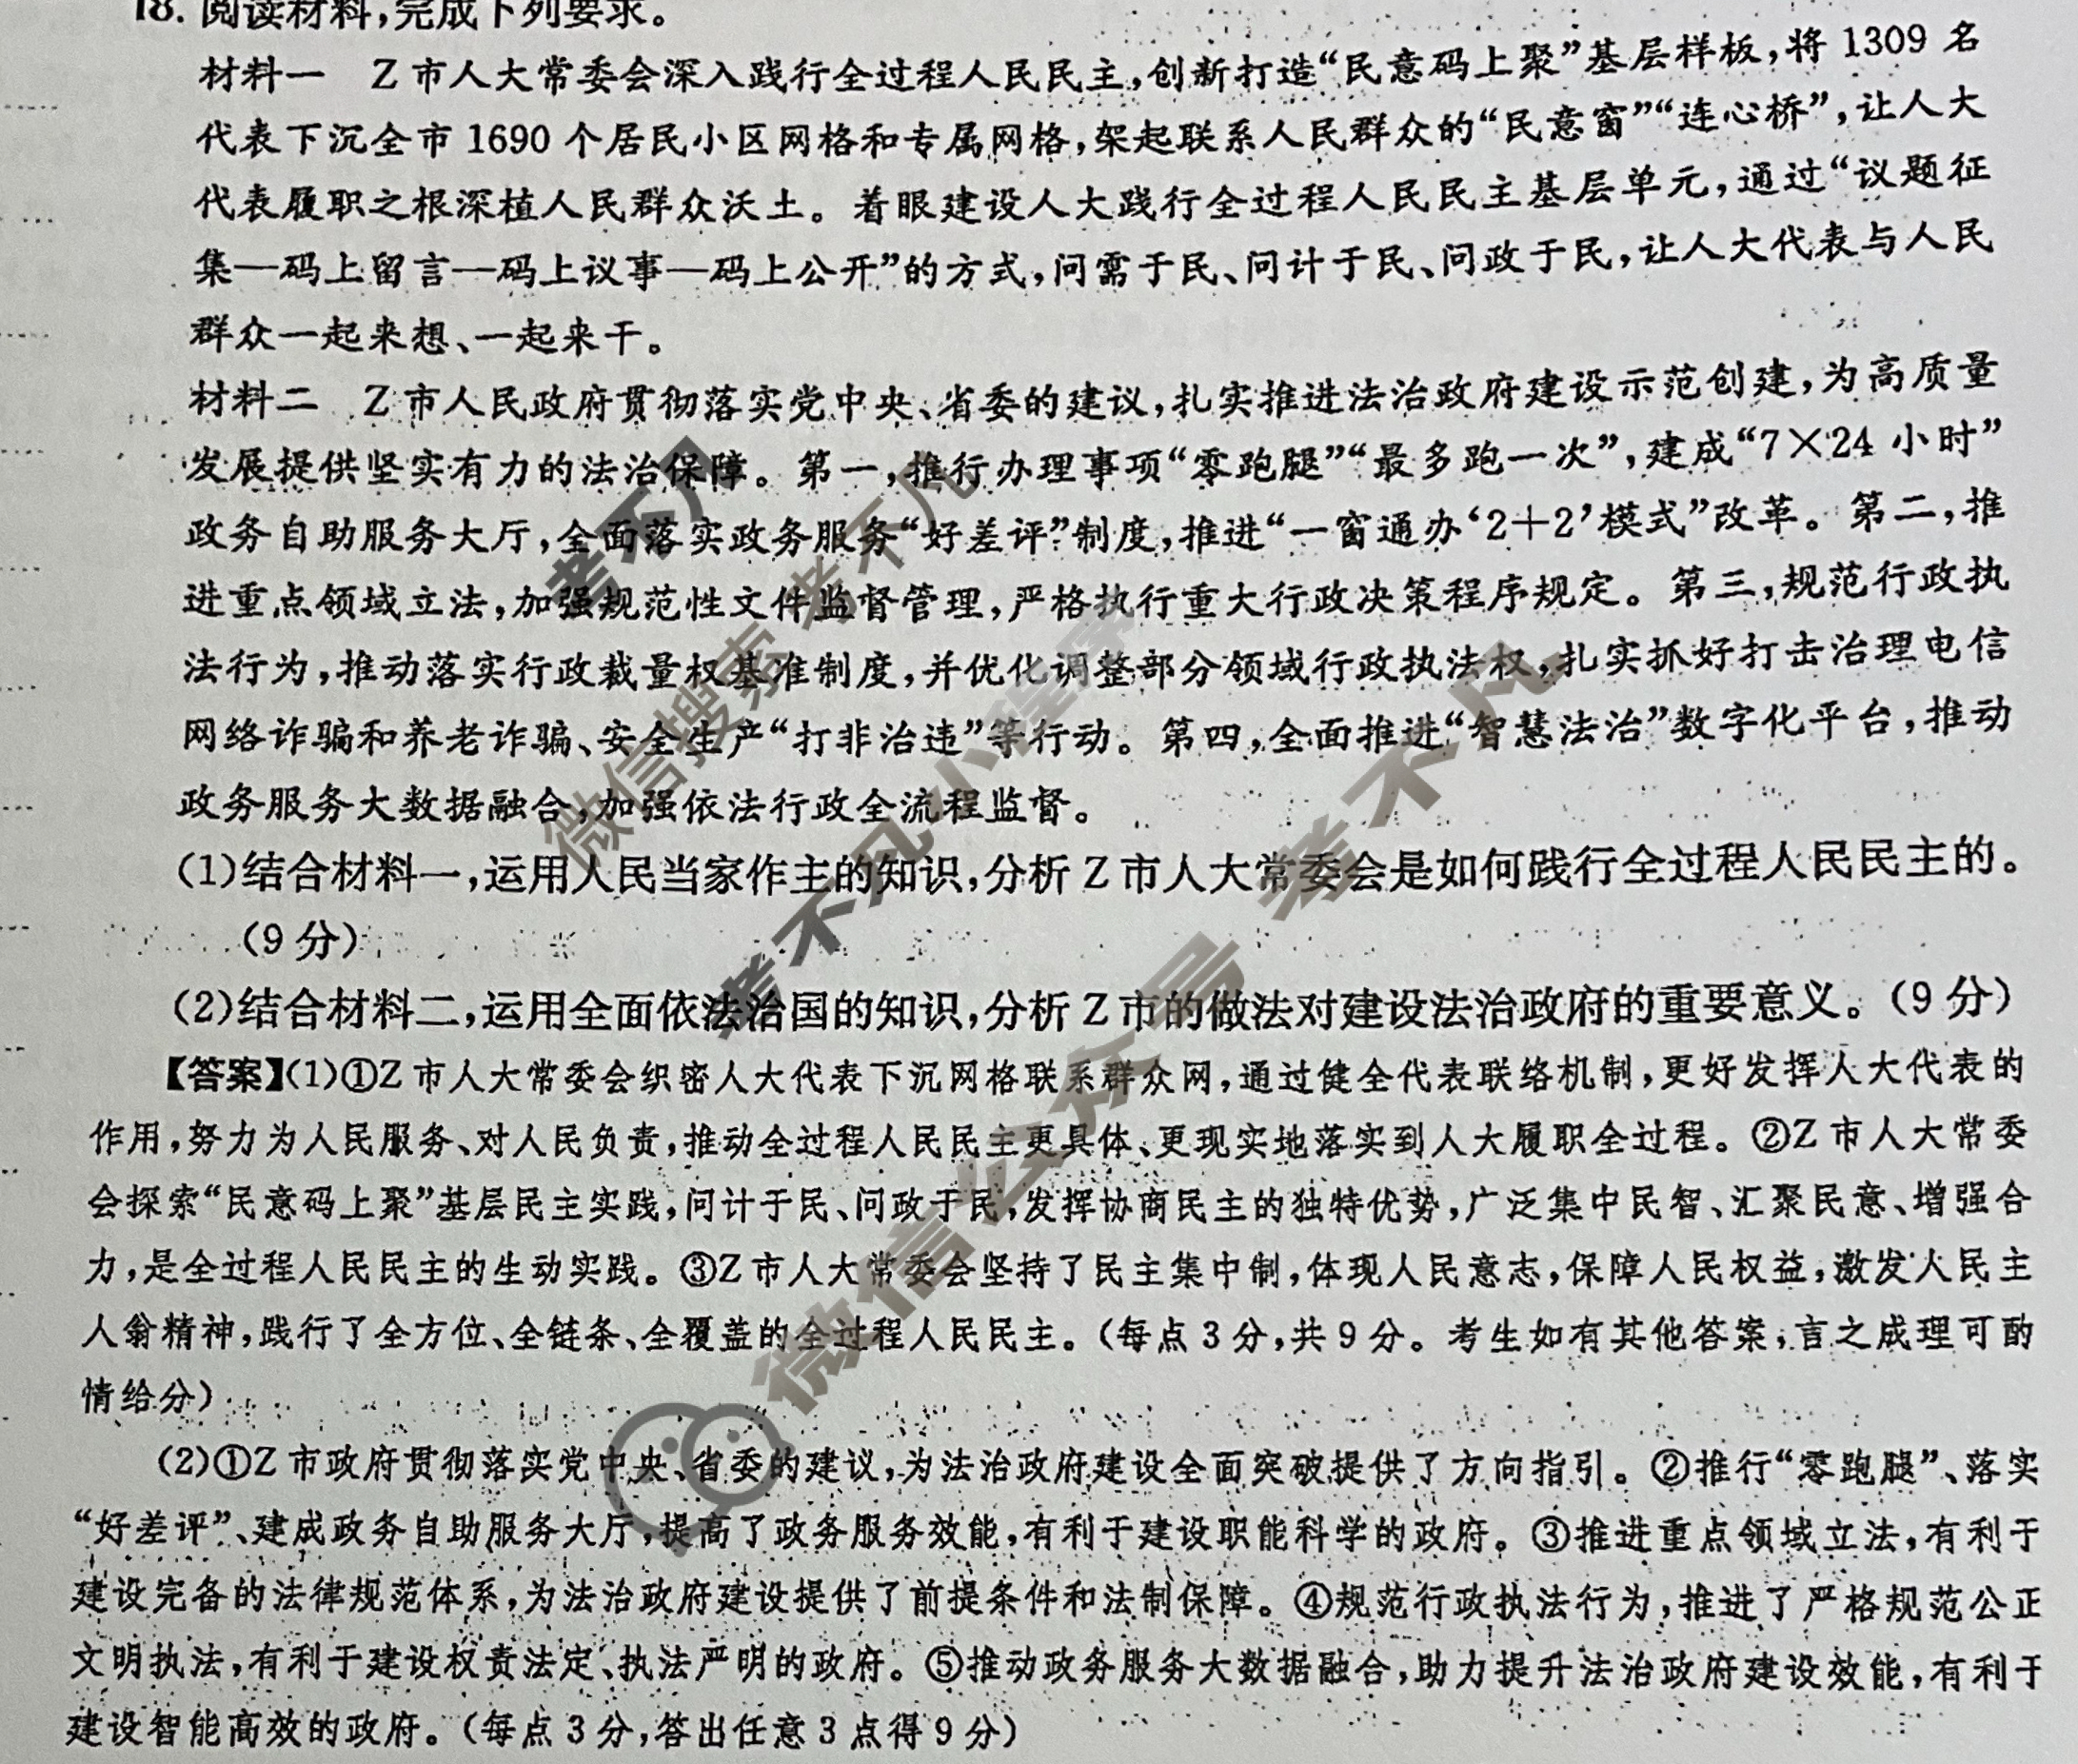 18. 阅读材料,完成下列要求。
材料一 Z市人大常委会深入践行全过程人民民主,创新打造“民意码上聚”基层样板,将1309名
代表下沉全市1690个居民小区网格和专属网格,架起联系人民群众的“民意窗”“连心桥”,让人大
代表履职之根深植人民群众沃土。着眼建设人大践行全过程人民民主基层单元,通过“议题征
集—码上留言—码上议事—码上公开”的方式,问需于民、问计于民、问政于民,让人大代表与人民
群众一起来想、一起来干。
材料二 Z市人民政府贯彻落实党中央、省委的建议,扎实推进法治政府建设示范创建,为高质量
发展提供坚实有力的法治保障。第一,推行办理事项“零跑腿”“最多跑一次”,建成“7×24小时”
政务自助服务大厅,全面落实政务服务“好差评”制度,推进“一窗通办‘2+2’模式”改革。第二,推
进重点领域立法,加强规范性文件监督管理,严格执行重大行政决策程序规定。第三,规范行政执
法行为,推动落实行政裁量权基准制度,并优化调整部分领域行政执法权,扎实抓好打击治理电信
网络诈骗和养老诈骗、安全生产“打非治违”等行动。第四,全面推进“智慧法治”数字化平台,推动
政务服务大数据融合,加强依法行政全流程监督。
(1)结合材料一,运用人民当家作主的知识,分析Z市人大常委会是如何践行全过程人民民主的。
(9分)
(2)结合材料二,运用全面依法治国的知识,分析Z市的做法对建设法治政府的重要意义。(9分)
【答案】(1)①Z市人大常委会织密人大代表下沉网格联系群众网,通过健全代表联络机制,更好发挥人大代表的
作用,努力为人民服务、对人民负责,推动全过程人民民主更具体、更现实地落实到人大履职全过程。②Z市人大常委
会探索“民意码上聚”基层民主实践,问计于民、问政于民,发挥协商民主的独特优势,广泛集中民智、汇聚民意、增强合
力,是全过程人民民主的生动实践。③Z市人大常委会坚持了民主集中制,体现人民意志,保障人民权益,激发人民主
人翁精神,践行了全方位、全链条、全覆盖的全过程人民民主。(每点3分,共9分。考生如有其他答案,言之成理可酌
情给分)
(2)①Z市政府贯彻落实党中央、省委的建议,为法治政府建设全面突破提供了方向指引。②推行“零跑腿”、落实
“好差评”、建成政务自助服务大厅,提高了政务服务效能,有利于建设职能科学的政府。③推进重点领域立法,有利于
建设完备的法律规范体系,为法治政府建设提供了前提条件和法制保障。④规范行政执法行为,推进了严格规范公正
文明执法,有利于建设权责法定、执法严明的政府。⑤推动政务服务大数据融合,助力提升法治政府建设效能,有利于
建设智能高效的政府。(每点3分,答出任意3点得9分)
考不凡
微信搜索 考不凡
考不凡小程序
微信公众号 考不凡